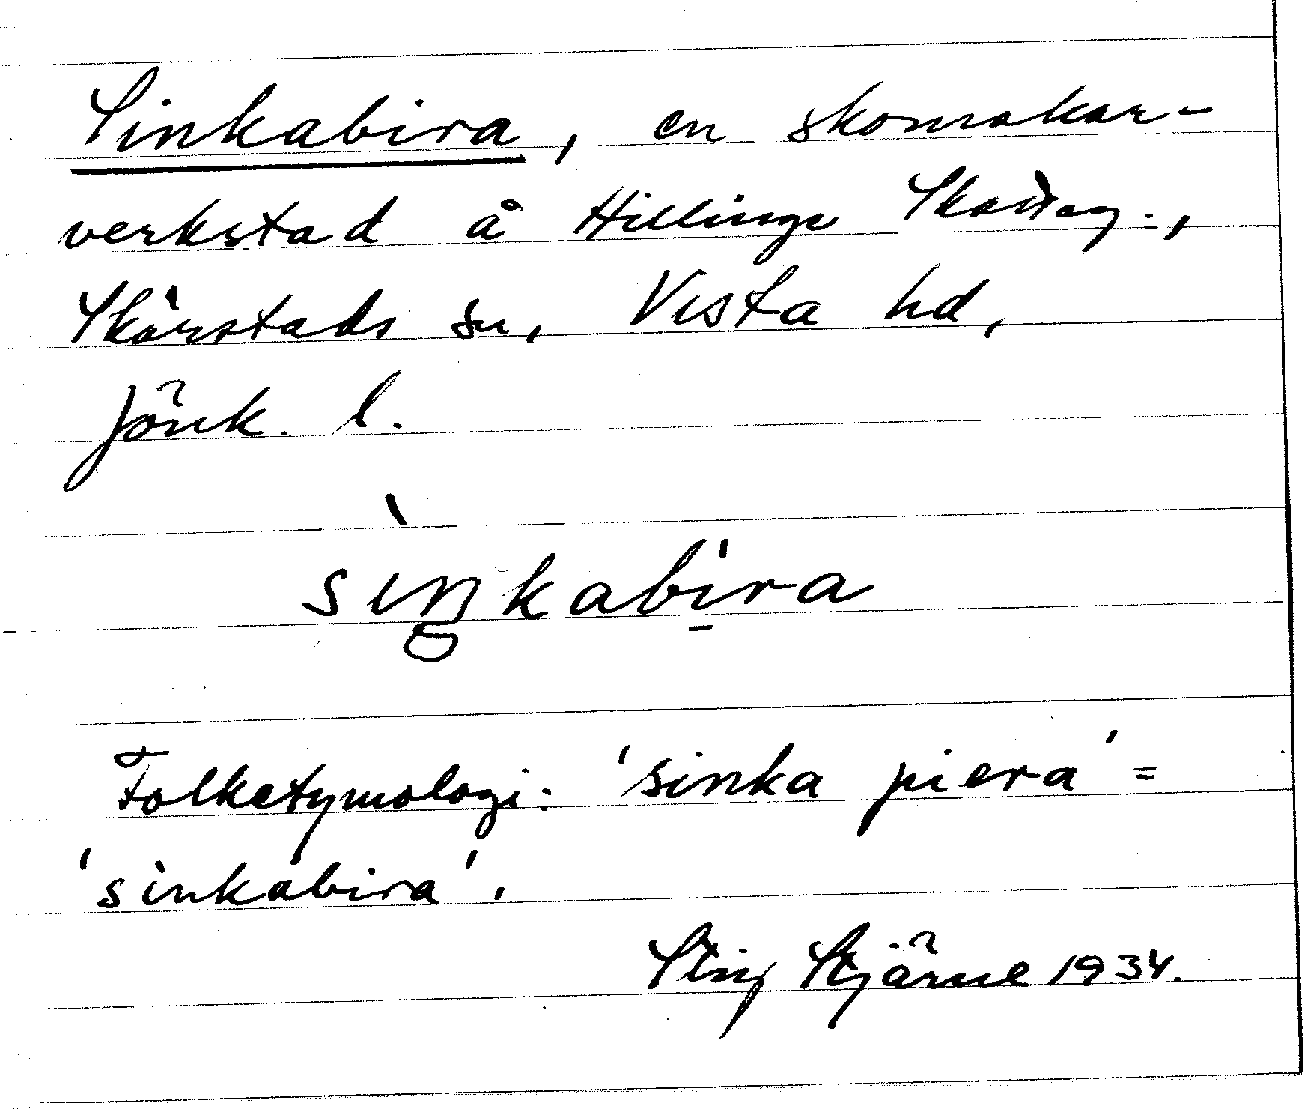 Sinkabira, en skomakar-
verkstad å Hillinge Skatteg.,
Skärstads sn, Vista hd,
Jönk. l.
sìŋkabira
Folketymologi: 'sinka piera' =
'sinkabira'.
Stig Stjärne 1934.